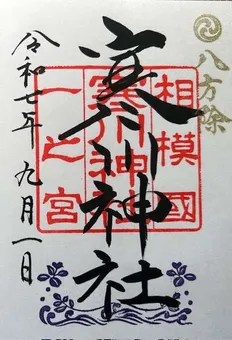 八方除
寒川神社
相模國
寒川神社
一之宮
令和七年 九月一日